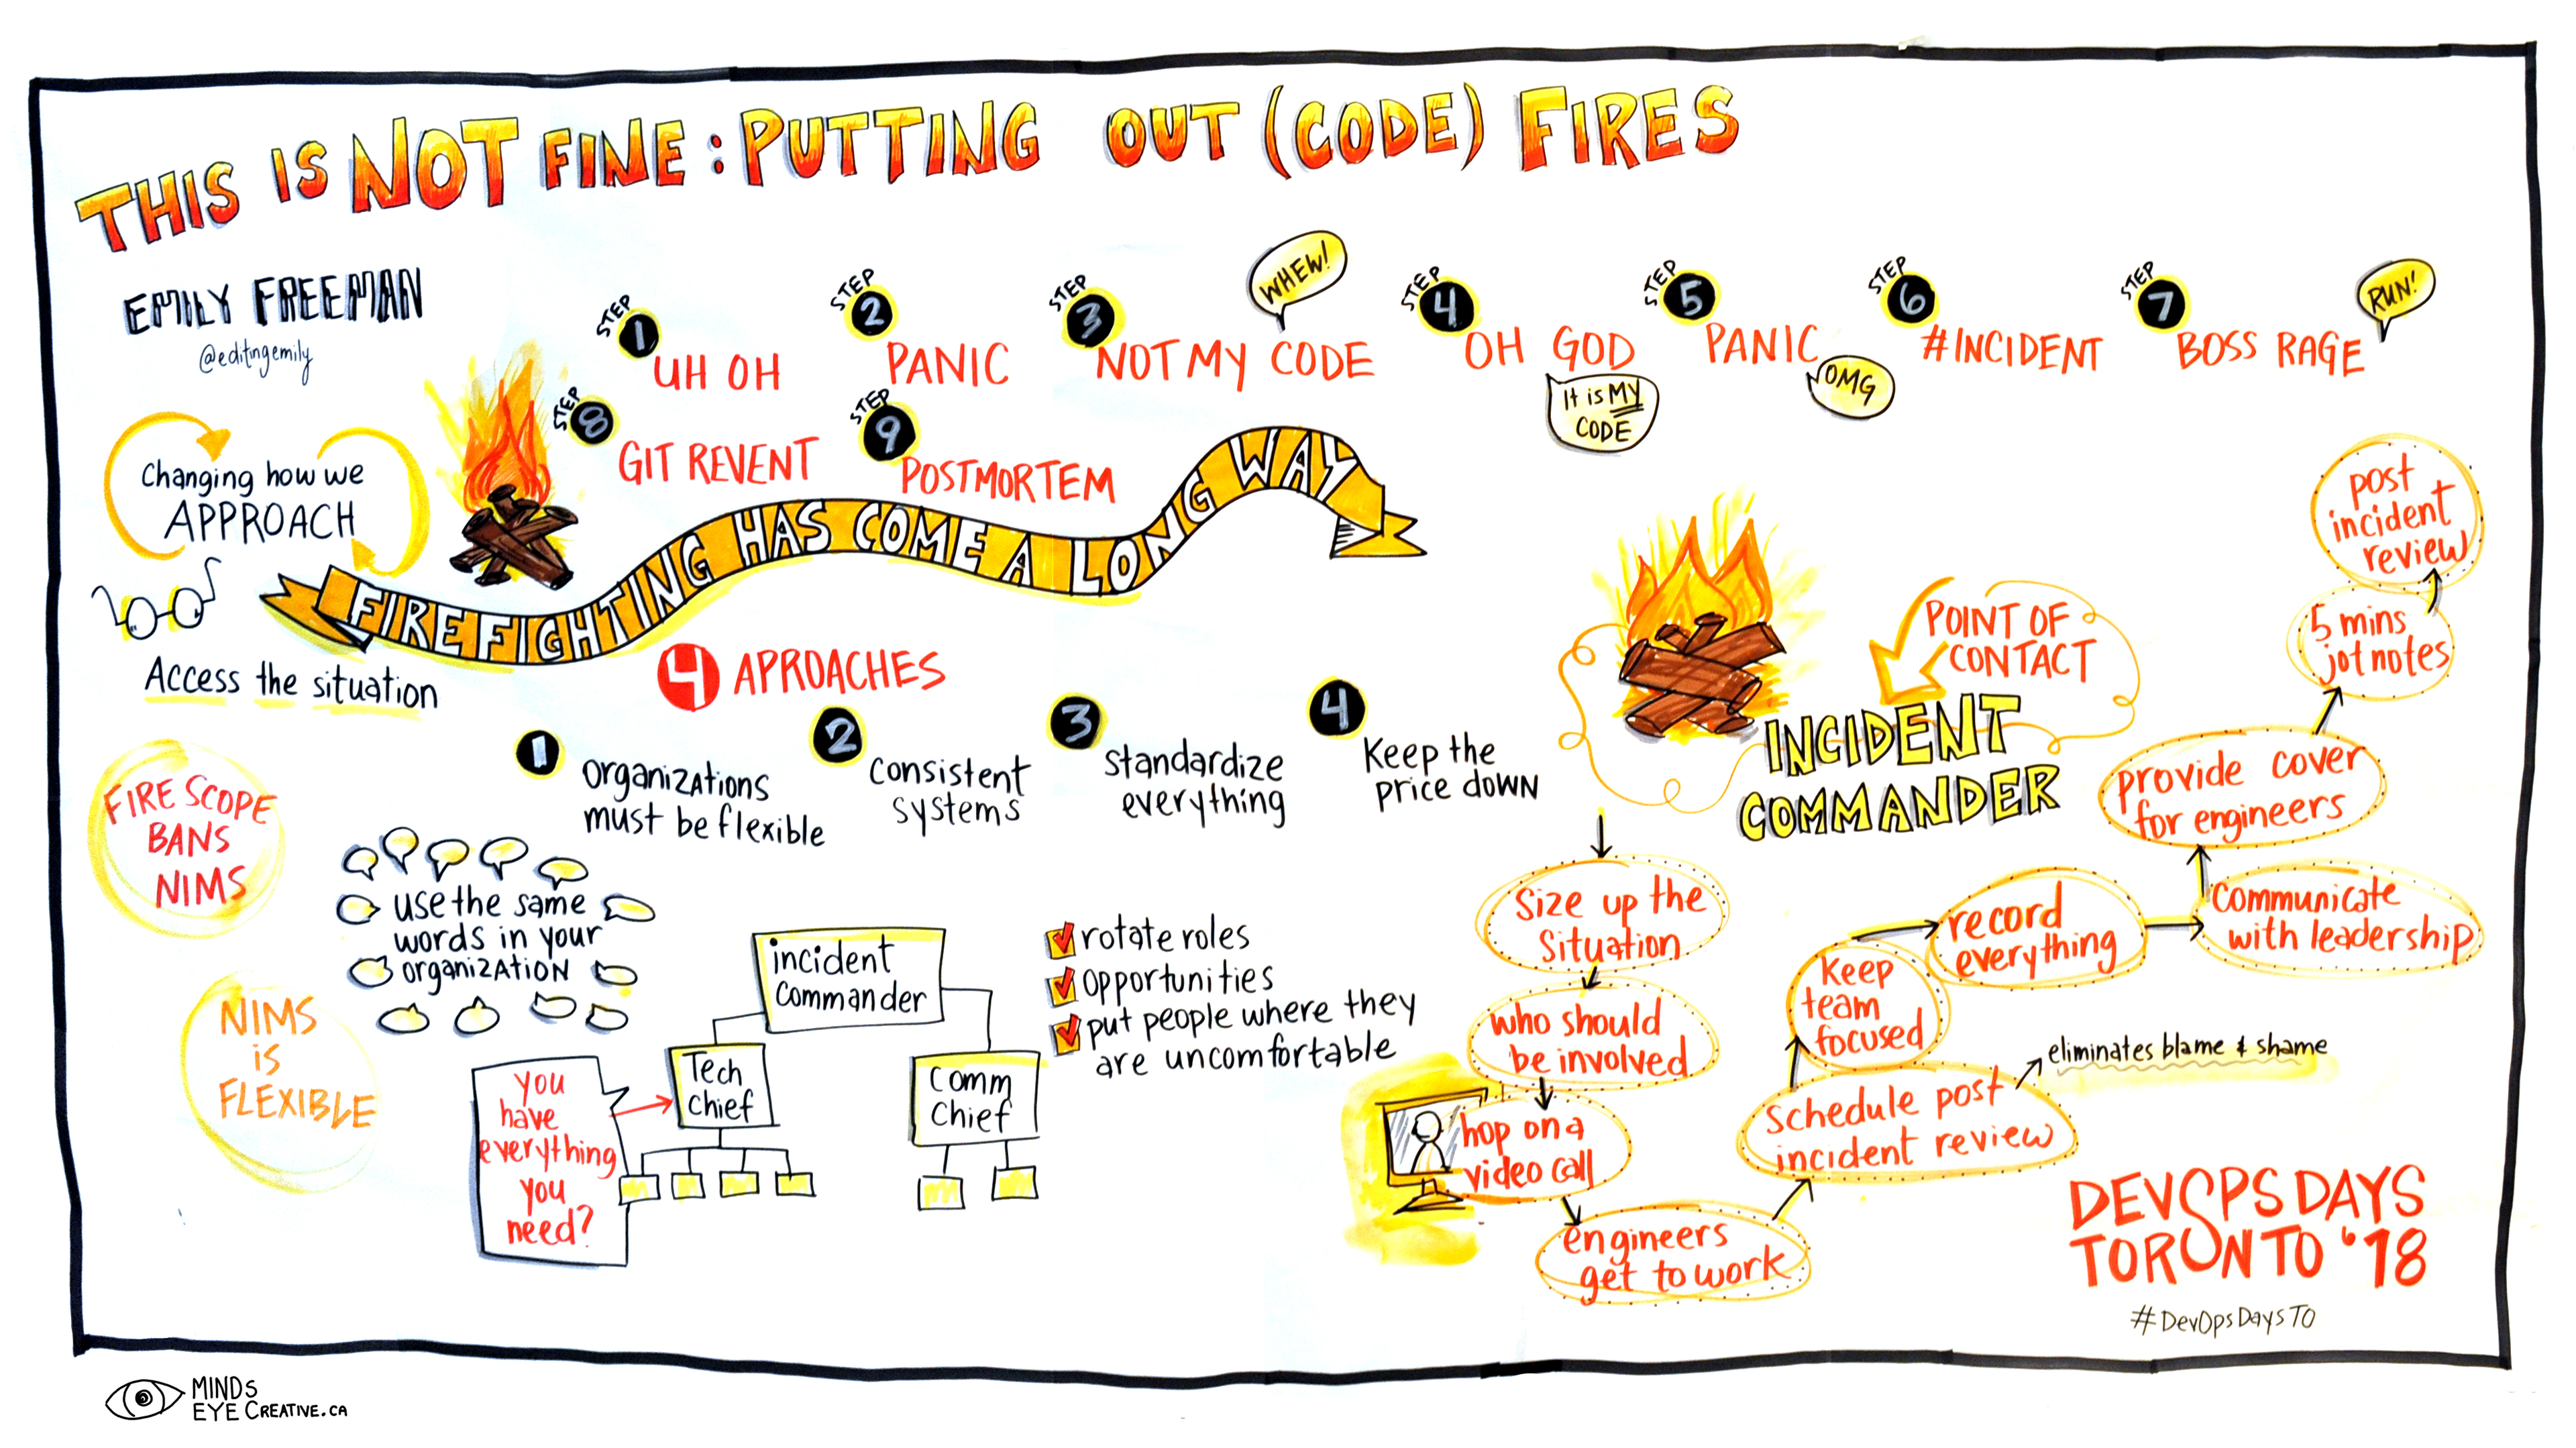 THIS IS NOT FINE: PUTTING OUT (CODE) FIRES
EMILY FREEMAN
@editingemily
STEP 1
UH OH
STEP 2
PANIC
STEP 3
NOT MY CODE
WHEW!
STEP 4
OH GOD
It is MY
CODE
STEP 5
PANIC
OMG
STEP 6
#INCIDENT
STEP 7
BOSS RAGE
RUN!
STEP 8
GIT REVENT
STEP 9
POSTMORTEM
Changing how we
APPROACH
Access the situation
FIREFIGHTING HAS COME A LONG WAY
4 APROACHES
1
organizations
must be flexible
2
consistent
systems
3
standardize
everything
4
Keep the
price down
FIRE SCOPE
BANS
NIMS
NIMS
is
FLEXIBLE
use the same
words in your
organization
incident
commander
Tech
chief
Comm
chief
you
have
everything
you
need?
rotate roles
opportunities
put people where they
are uncomfortable
POINT OF
CONTACT
INCIDENT
COMMANDER
Size up the
situation
who should
be involved
hop on a
video call
engineers
get to work
schedule post
incident review
eliminates blame & shame
Keep
team
focused
record
everything
communicate
with leadership
provide cover
for engineers
5 mins
jot notes
post
incident
review
DEVOPS DAYS
TORONTO '18
#DevOpsDaysTO
MINDS
EYE CREATIVE.CA